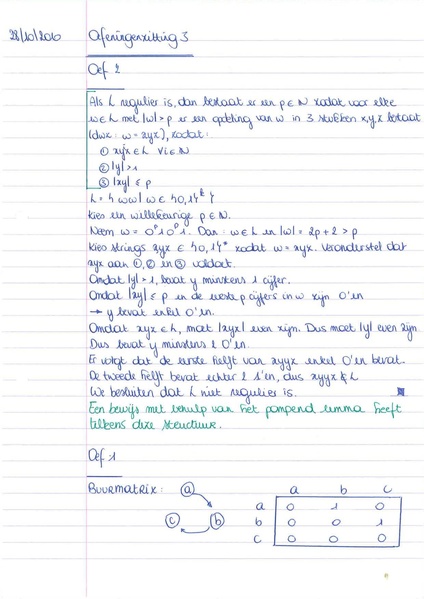 28/10/2010 Oefeningenzitting 3
Oef 2
Als L regulier is, dan bestaat er een p ∈ N zodat voor elke
w ∈ L met |w| > p er een opdeling van w in 3 stukken x,y,z bestaat
(dwz: w = xyz), zodat:
① xyⁱz ∈ L ∀i ∈ N
② |y| > 1
③ |xy| ≤ p
L = { ww | w ∈ {0,1}* }
Kies een willekeurige p ∈ N.
Neem w = 0ᵖ10ᵖ1. Dan: w ∈ L en |w| = 2p+2 > p
Kies strings xyz ∈ {0,1}* zodat w = xyz. Veronderstel dat
xyz aan ①, ② en ③ voldoet.
Omdat |y| > 1, bevat y minstens 1 cijfer.
Omdat |xy| ≤ p en de eerste p cijfers in w zijn 0'en
→ y bevat enkel 0'en.
Omdat xyz ∈ L, moet |xyz| even zijn. Dus moet |y| even zijn.
Dus bevat y minstens 2 0'en.
Er volgt dat de eerste helft van xyyz enkel 0'en bevat.
De tweede helft bevat echter 2 1'en, dus xyyz ∉ L
We besluiten dat L niet regulier is.
Een bewijs met behulp van het pompend lemma heeft
telkens deze structuur.
Oef 1
Buurmatrix: a b c
a b c
a 0 1 0
b 0 0 1
c 0 0 0